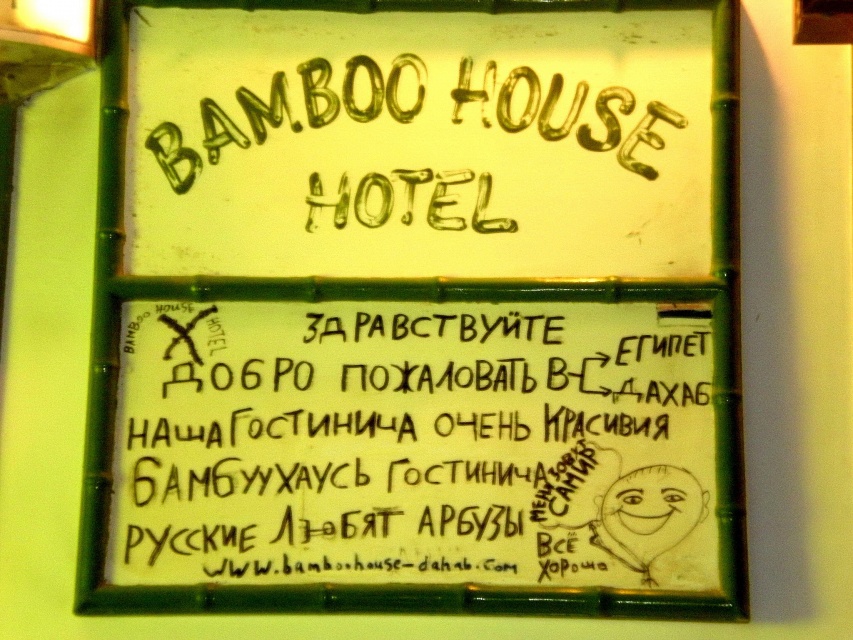 BAMBOO HOUSE
HOTEL
BAMBOO HOUSE HOTEL
ЗДРАВСТВУЙТЕ
ДОБРО ПОЖАЛОВАТЬ В
ЕГИПЕТ
ДАХАБ
НАША ГОСТИНИЧА ОЧЕНЬ КРАСИВИЯ
БАМБУУХАУСЬ ГОСТИНИЧА
МЕНЯ ЗОВУТ
САМИР
РУССКИЕ ЛЮБЯТ АРБУЗЫ
ВСЁ
ХОРОШО
www.bamboohouse-dahab.com